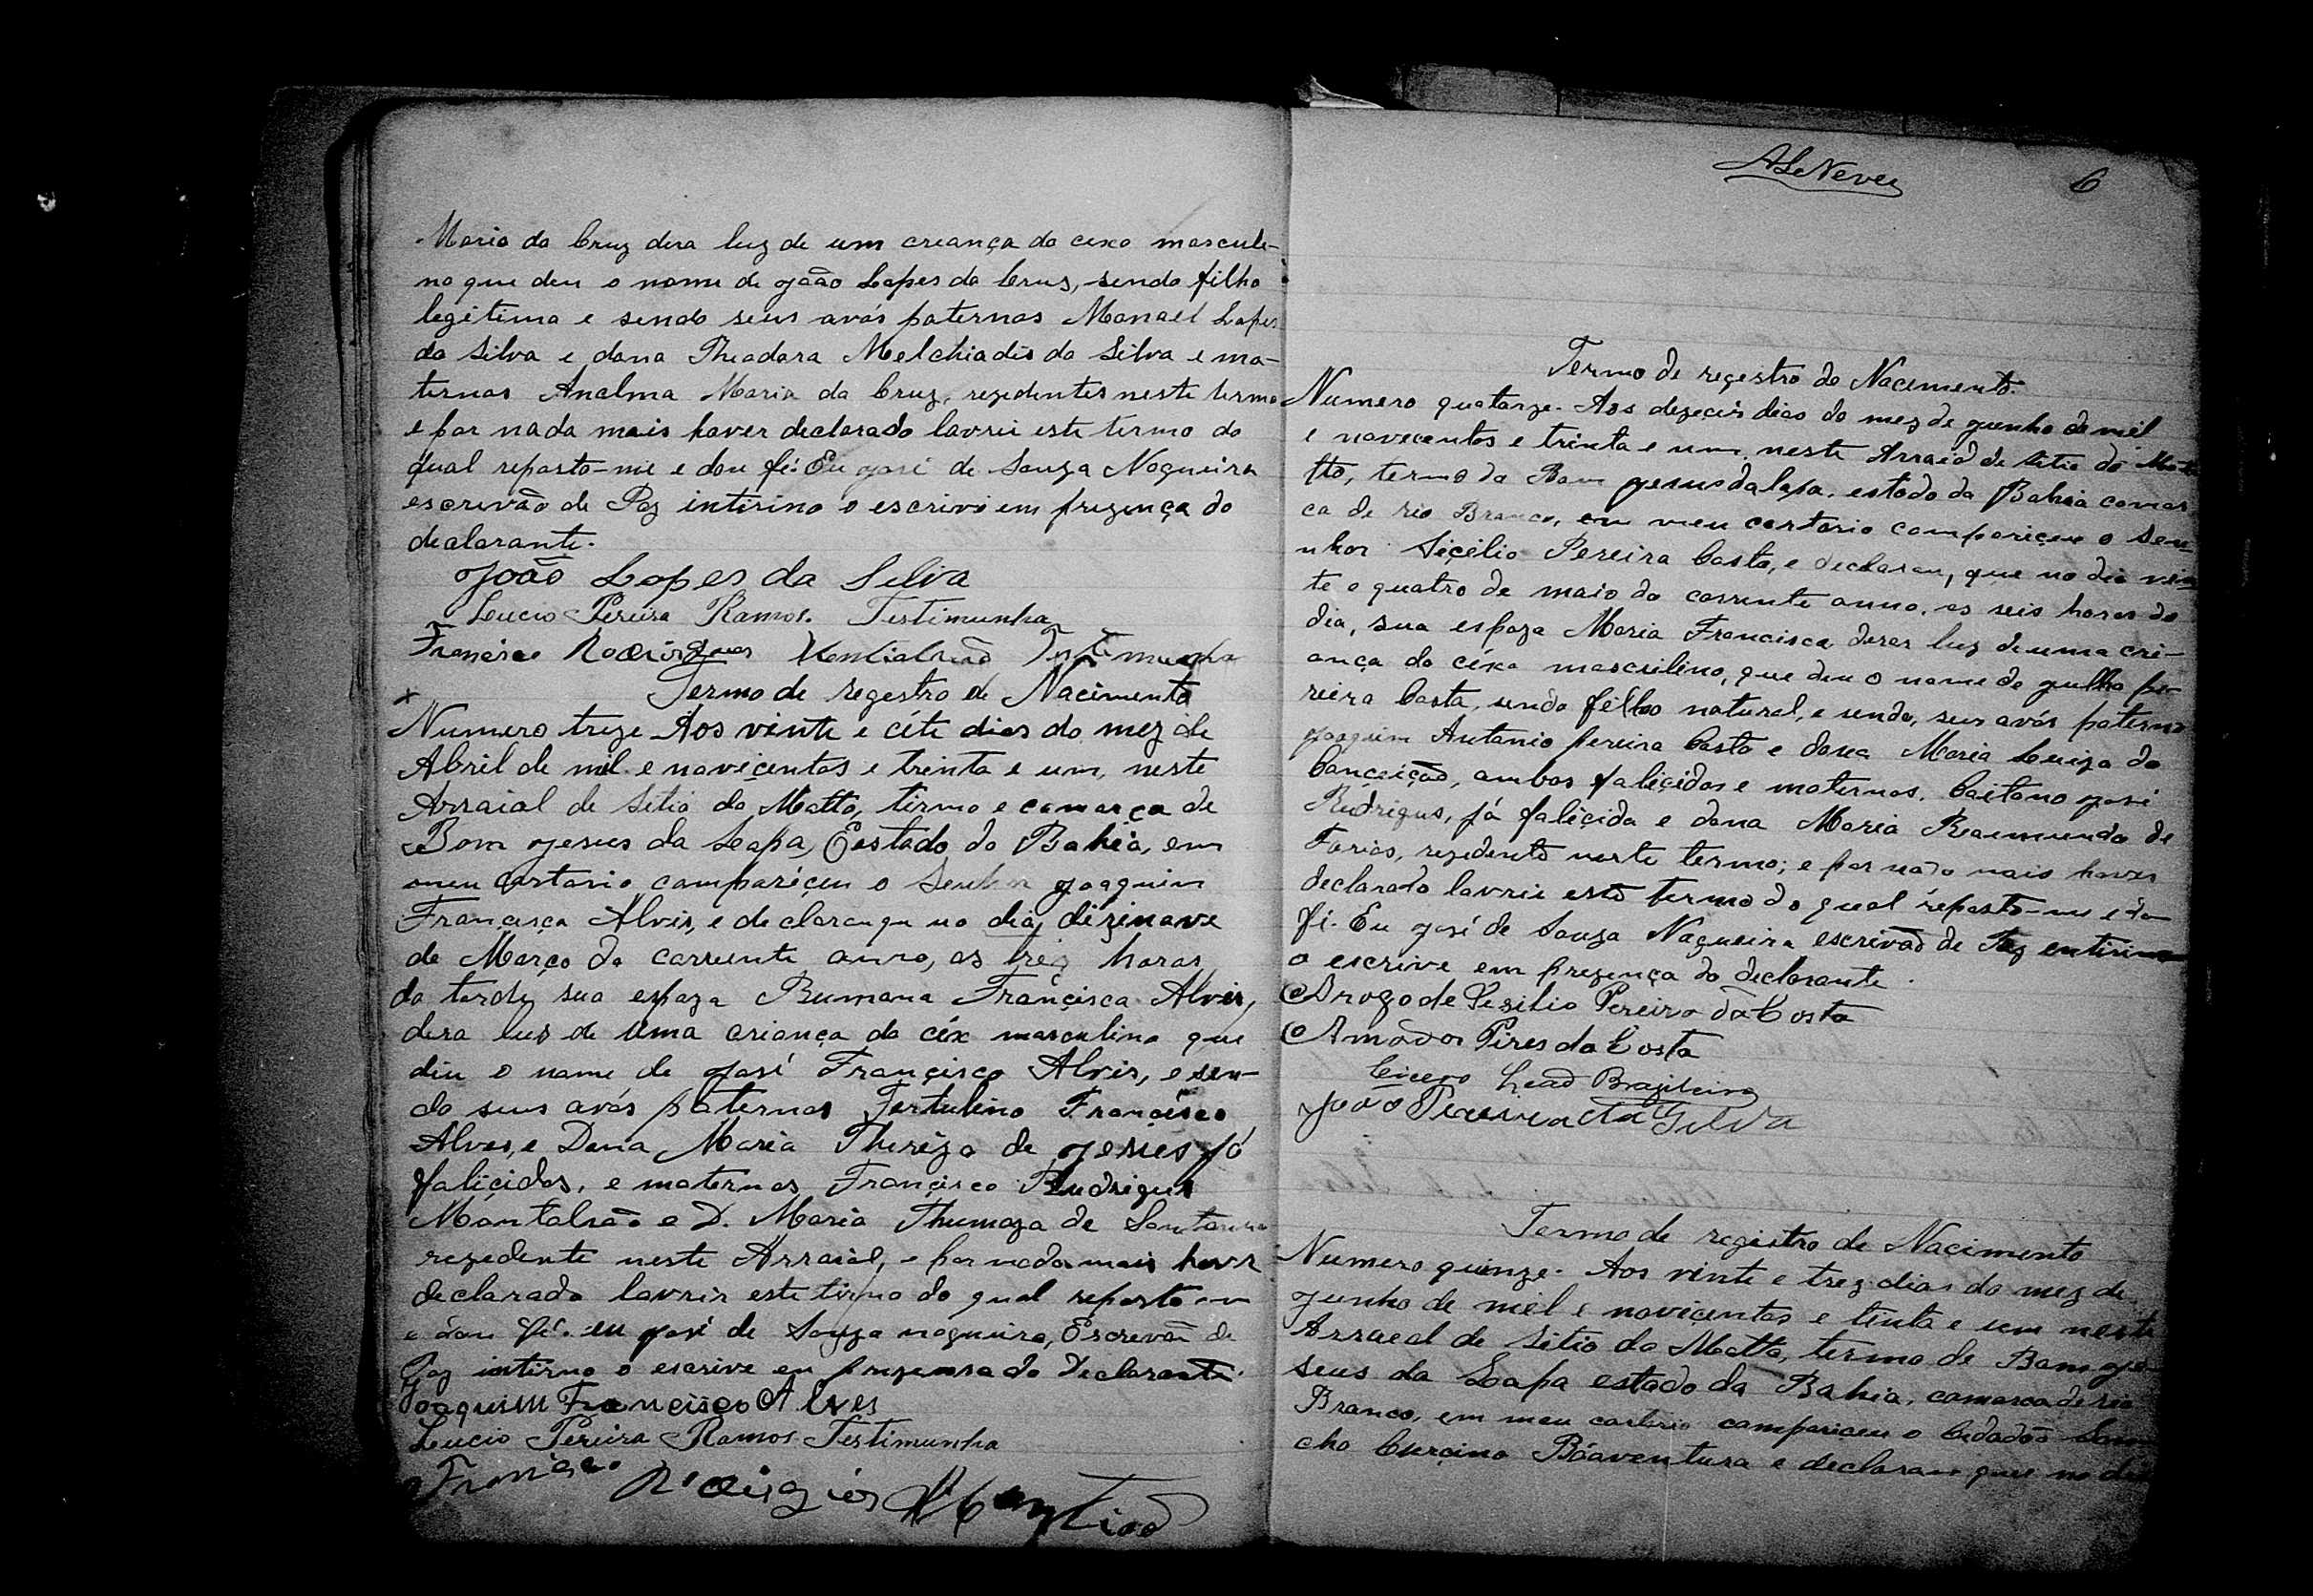 Maria da Cruz dera luz de um creança do cexo masculi-
no que deu o nome de João Lopes da Cruz, sendo filho
legitimo e sendo seus avós paternos Manoel Lopes
da Silva e dona Theodora Melchiadis da Silva e ma-
ternos Anelma Maria da Cruz, rezidentes neste termo
e por nada mais haver declarado lavrei este termo do
qual reporto-me e dou fé. Eu José de Souza Nogueira
escrivão de Paz intirino o escrivi em prezença do
dealarante.
João Lopes da Silva
Lucio Pereira Ramos. Testimunha
Francisco Rodrigues Testimunha
Termo de regestro de Nacimento
Numero treze Aos vinte e céte dias do mez de
Abril de mil e noviçentos e trinta e um, neste
Arraial de Sitio do Matto, tirmo e comarca de
Bom Jesus da Leapa, Eestado da Bahia, em
meu cartorio compariçeu o Senhor Joaquim
Françisco Alvis, e declarou que no dia dizinove
de Março do corrente anno, as trez horas
da tarde, sua espoza Rumana Françisca Alvis,
dera luz de uma criança do céx masculino que
diu o nome de José Françisco Alvis, e sen-
do seus avós paternos Tertulino Francisco
Alves, e Dona Maria Thereza de Jesus já
faliçidos, e maternos Françisco Rudrigues
Montalvão e D. Maria Thumaza de Santanna
rezidente neste Arraial, e por nada mais haver
declarado lavrei este tirmo do qual reporto-me
e dou fé. eu José de Souza nogueira, Escrevão de
Paz intirno o escrive em prezensa do Declarante.
Joaquim Francisco Alves
Lucio Pereira Ramos Testimunha
Francisco
ALNeves 6
Termo de regestro de Nacimento.
Numero quatorze. Aos dezeceis dias do mez de junho de mil
e novecentos e trinta e um, neste Arraial de Sitio do Mat-
tto, termo da Bom Jesus da lapa, estado da Bahia comar
ca de rio Branco, em meu cartorio compariçeu o Sen-
nhor Siçilio Pereira Costa, e declarou, que no dia vin-
te e quatro de maio do corrente anno, as seis horas do
dia, sua espoza Maria Francisca deras luz de uma cri-
ança do céxo masculino, que deu o nome de Julho pe-
reira Costa, sendo filho natural, e sendo, seus avós paterno
Joaquim Antonio pereira Costa e dona Maria Luiza da
Conceição, ambos faliçidos e maternos, Caetano José
Rudrigus, já faliçido e dona Maria Reaimunda de
Farias, rezidente neste termo; e por nada mais haver
declarado lavrei este termo do qual reporto-me e dou
fé. Eu José de Souza Nogueira escrivão de Paz entirino
o escrive em prezença do declarante.
Arogo de Sezilio Pereira da Costa
Amador Pires da Costa
Cicero Leão Brazileiro
João Pereira da Silva
Termo de registro de Naçimento
Numero quinze. Aos vinte e trez dias do mez de
junho de mil e noviçentos e tinta e um neste
Arraeal de Sitio do Matto, termo de Bom Je-
seus da Leapa estado da Bahia, comarca de rio
Branco, em meu cartorio compariceu o Cidadão
cho Curçino Bôaventura e declarou que no dia